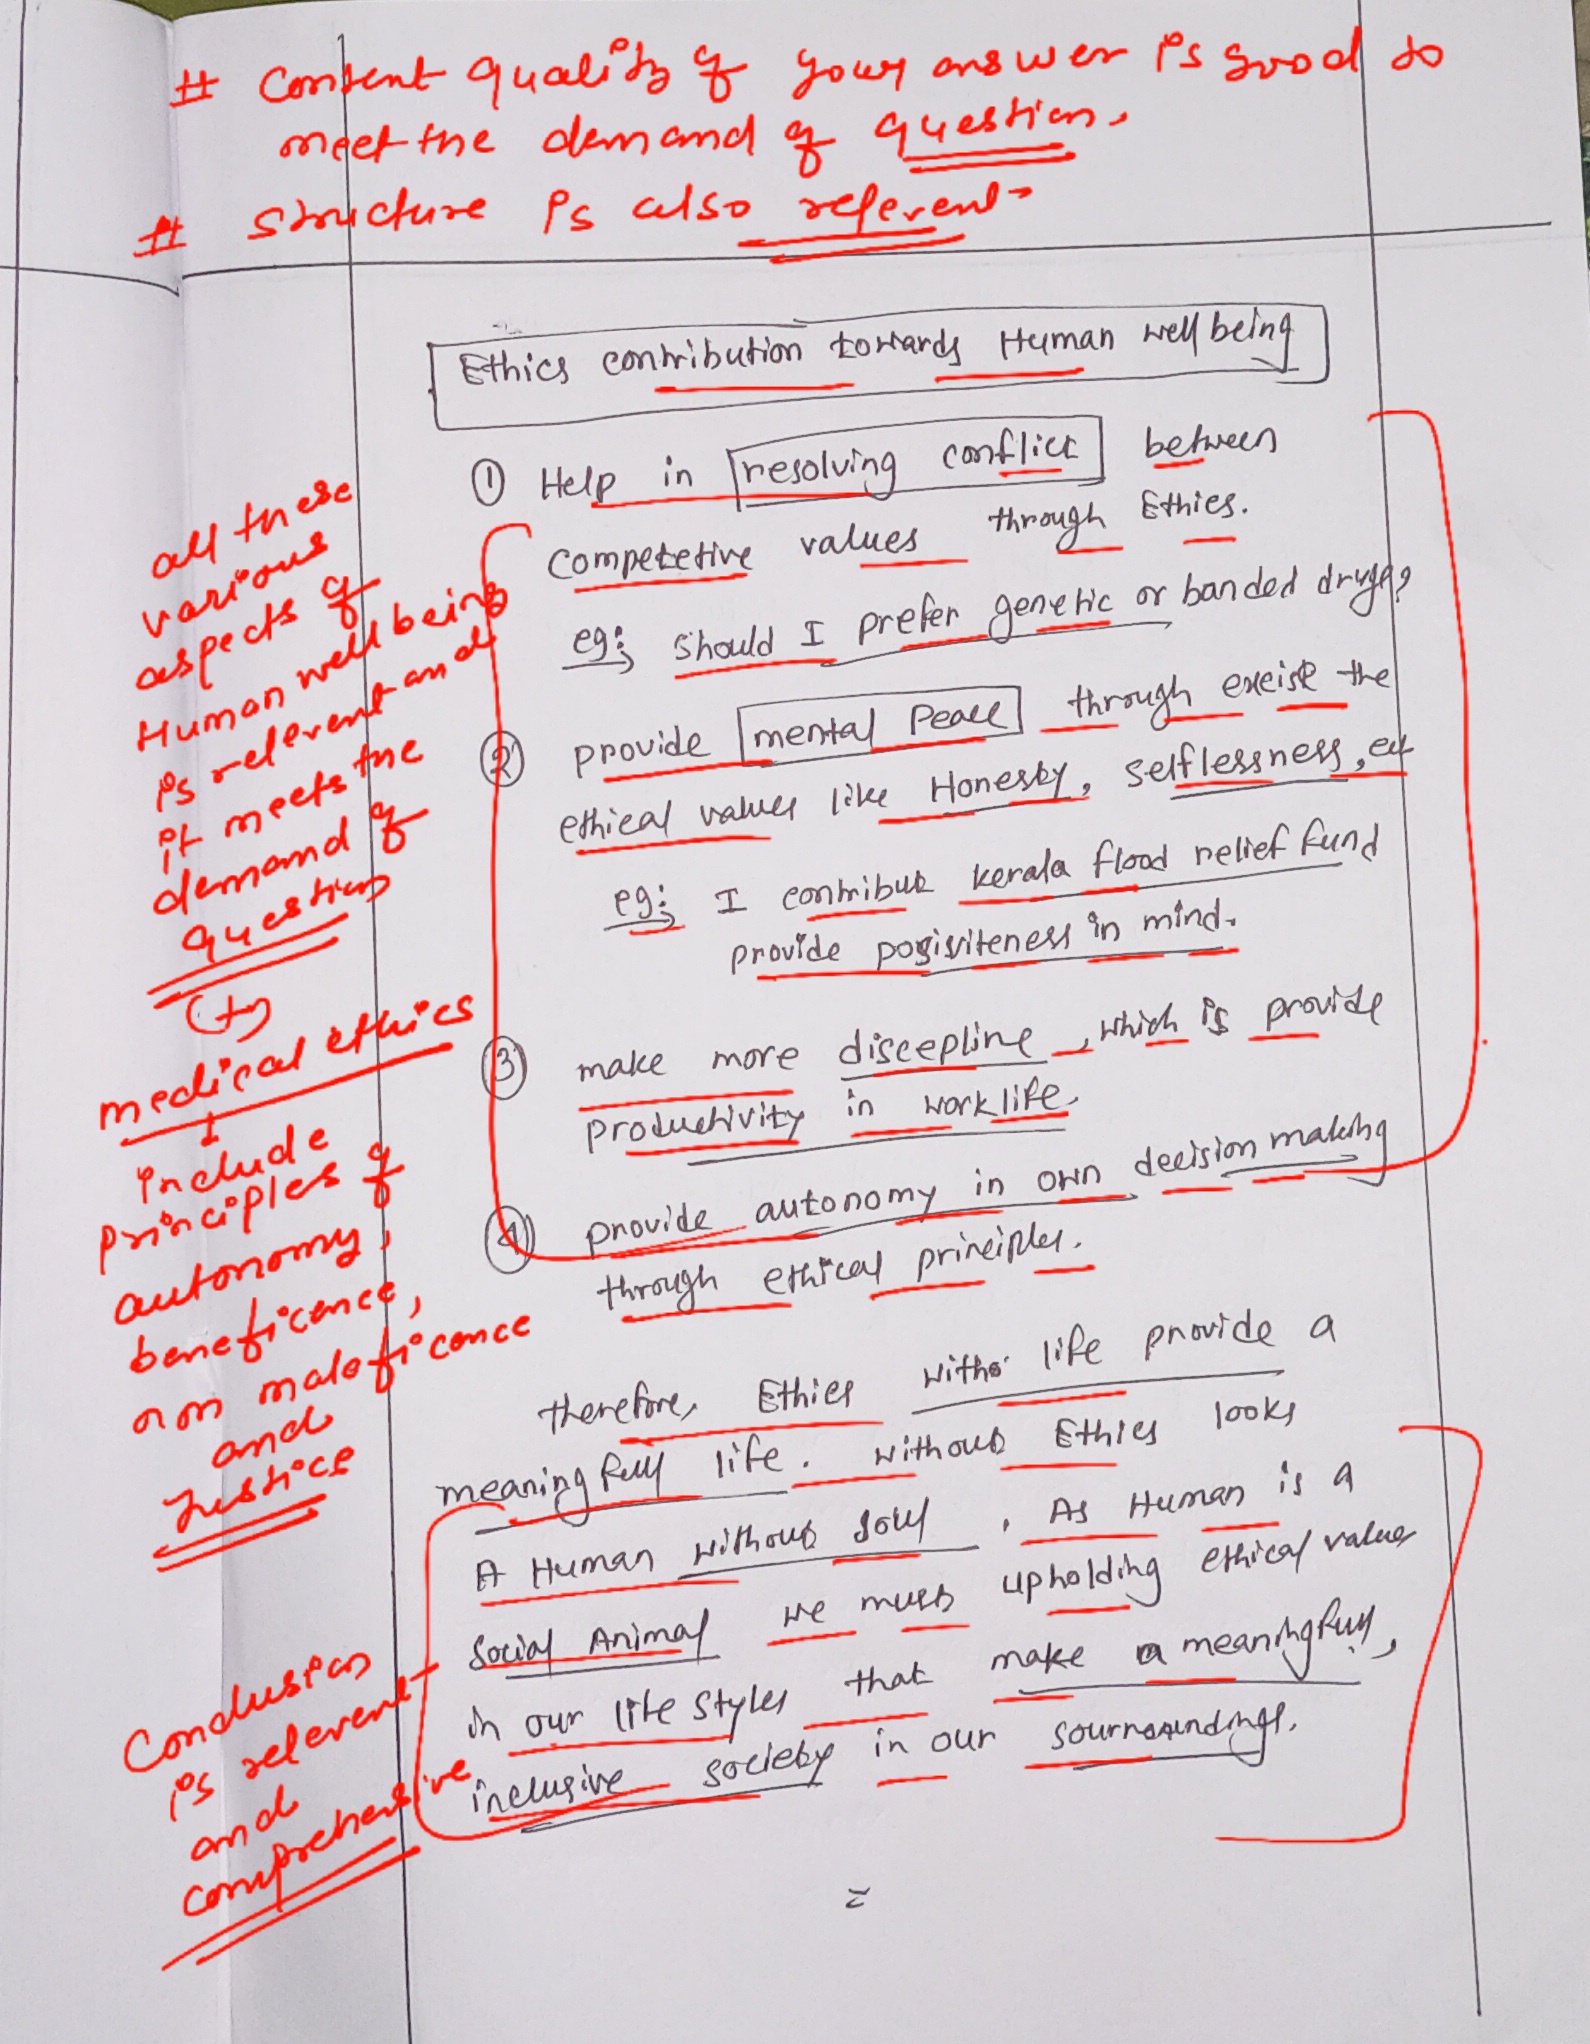 # Content quality of your answer is good to
meet the demand of question.
# structure is also relevent
Ethics contribution towards Human well being
① Help in resolving conflict between
competetive values through Ethics.
eg: should I prefer genetic or banded drugs?
② provide mental Peace through excise the
ethical values like Honesty, selflessness, ect
eg: I contribut kerala flood relief fund
provide posisiteness in mind.
③ make more discepline, which is provide
productivity in work life.
④ provide autonomy in own decision making
through ethical principles.
all these
various
aspects of
Human well being
is relevent and
it meets the
demand of
question
(+)
medical ethics
↓
include
principles of
autonomy,
beneficence,
non maleficence
and
Justice
therefore, Ethics witho life provide a
meaning full life. without Ethics looks
A Human without soul. As Human is a
Social Animal we must upholding ethical values
in our life styles that make a meaningfull,
inclusive society in our sournoundings.
Conclusion
is relevent
and
comprehensive
=